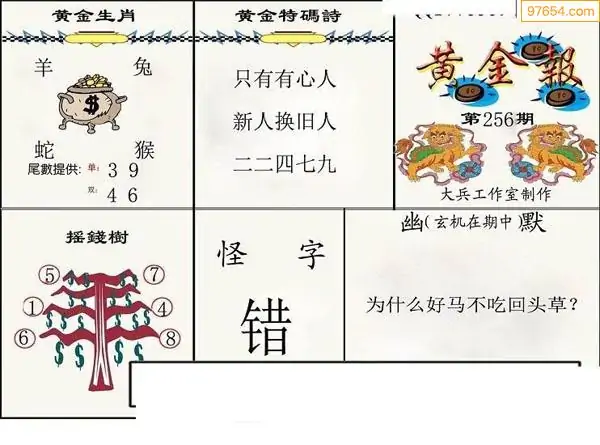 97654.com
黄金生肖
羊 兔
$
蛇 猴
尾數提供: 单: 3 9
双: 4 6
黄金特碼詩
只有有心人
新人换旧人
二二四七九
黄金報
第256期
大兵工作室制作
摇錢樹
⑤ ⑦
① ④
⑥ ⑧
$ $ $ $ $ $ $ $
怪 字
错
幽(玄机在期中)默
为什么好马不吃回头草?